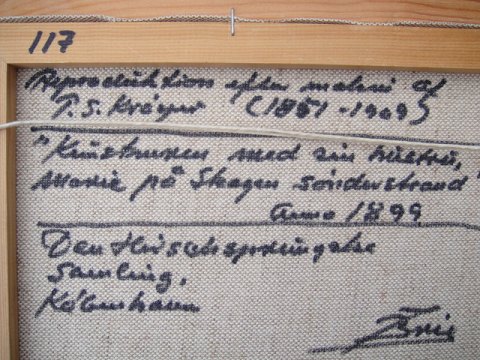 117
Reproduktion efter maleri af
P.S. Krøyer (1851-1909)
"Kunstneren med sin hustru,
Marie på Skagen sønderstrand"
Anno 1899
Den Hirschsprungske
Samling,
København